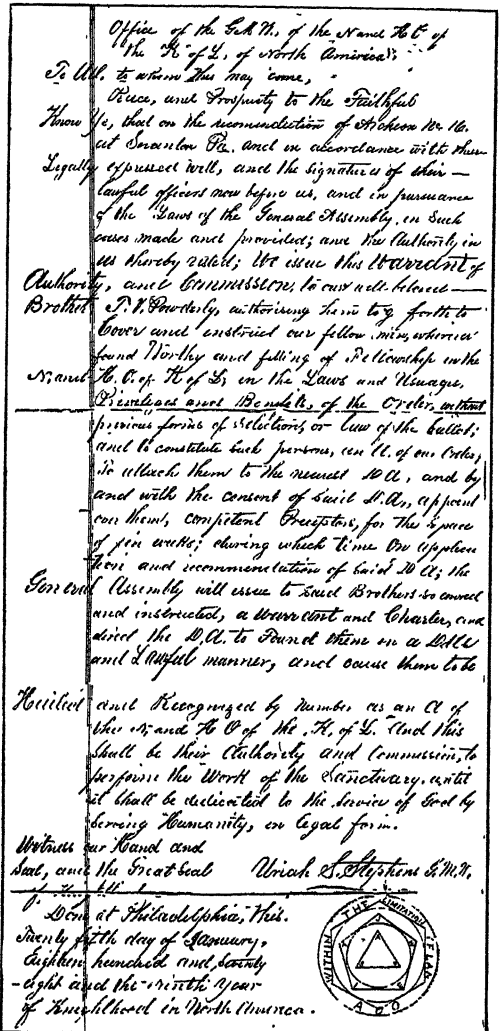 Office of the G.M.W. of the N and H O of
the K of L, of North America.
To All to whom this may come,
Peace, and Prosperity to the Faithful
Know Ye, that on the recomendation of Archeon No 16.
at Scranton Pa. and in accordance with their
Legally expressed will, and the signatures of their
lawful officers now before us, and in pursuance
of the Laws of the General Assembly, in such
cases made and provided; and the Authority in
us thereby vested; We issue this Warrant of
Authority, and Commission, to our well beloved
Brother T. V. Powderly, authorising him to go forth to
Cover and instruct our fellow men, wherever
found Worthy and fitting of Fellowship in the
N. and H. O. of K of L, in the Laws and Usages,
Privileges and Benefits, of the Order, without
previous forms of selection, or law of the ballot;
and to constitute such persons, an A. of our Order,
To attach them to the nearest D A, and by
and with the consent of said D. A., appoint
over them, competent Preceptors, for the space
of six weeks; during which time On applica
tion and recommendation of said D A; the
General Assembly will issue to said Brothers so covered
and instructed, a Warrant and Charter, and
direct the D. A. to Found them in a Due
and Lawful manner, and cause them to be
Hailed and Recognized by number as an A of
the N. and H O of the K. of L. And this
shall be their Authority and Commission, to
perform the Work of the Sanctuary, until
it shall be dedicated to the Service of God by
Serving Humanity, in legal form.
Witness our Hand and
Seal, and the Great Seal Uriah S. Stephens G.M.W.
Done at Philadelphia, this.
Twenty fifth day of January,
Eighteen hundred and seventy
-eight and the ninth Year
of Knighthood in North America.
WITHIN THE LIMITATION